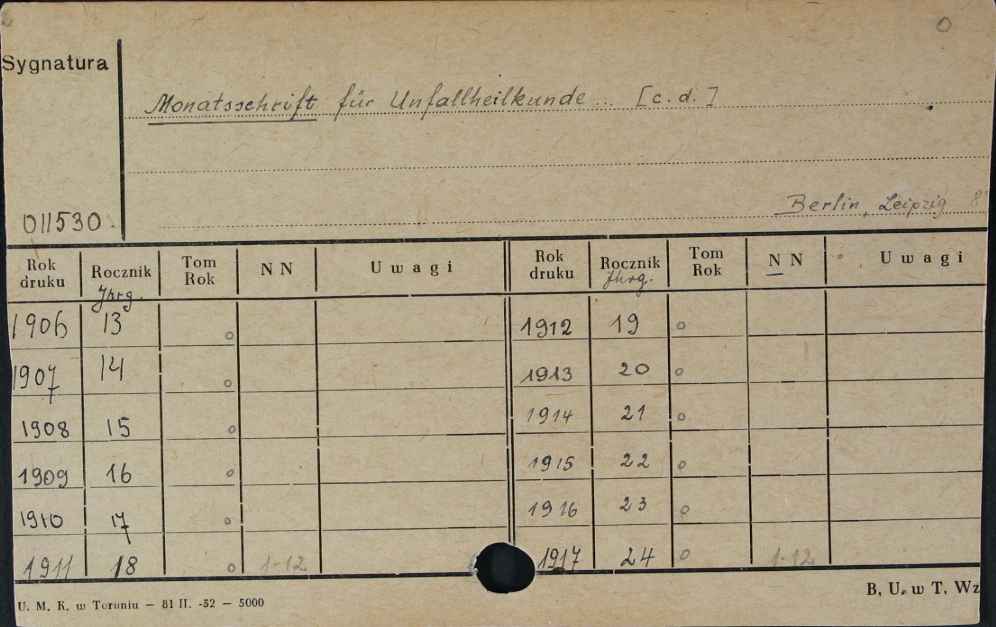 O
Sygnatura
Monatsschrift für Unfallheilkunde... [c.d.]
Berlin, Leipzig 8°
011530.
Rok druku Rocznik Jhrg. Tom Rok NN Uwagi Rok druku Rocznik Jhrg. Tom Rok NN Uwagi
1906 13 o 1912 19 o
1907 14 o 1913 20 o
1908 15 o 1914 21 o
1909 16 o 1915 22 o
1910 17 o 1916 23 o
1911 18 o 1-12 1917 24 o 1-12
U. M. K. w Toruniu — 81 II. -52 — 5000
B. U. w T. Wz